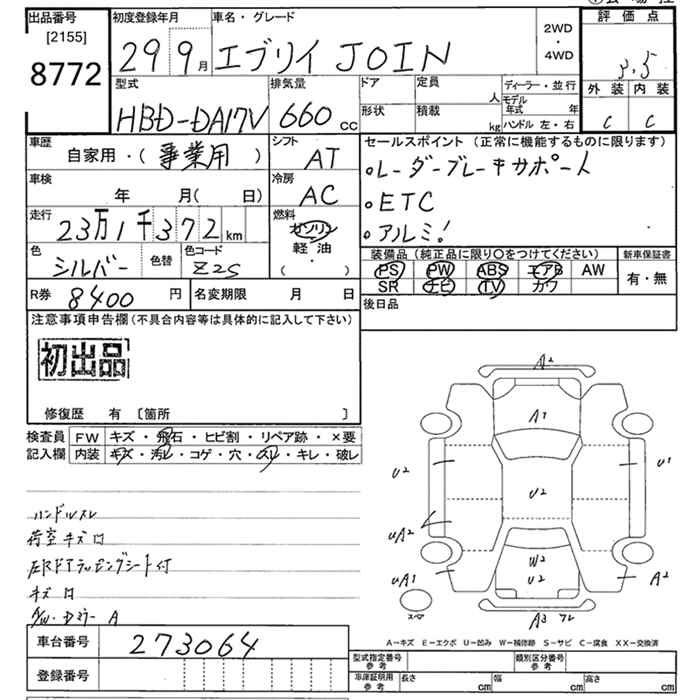 出品番号
[2155]
8772
初度登録年月
29 9月
車名・グレード
エブリイ JOIN
2WD
・
4WD
評価点
3.5
外装 内装
C C
型式
HBD-DA17V
排気量
660 cc
ドア
形状
定員 人
積載 kg
ディーラー・並行
モデル年式 年
ハンドル 左・右
車歴
自家用・(事業用)
シフト
AT
車検
年 月(日)
冷房
AC
走行
23万1千372km
燃料
ガソリン
軽・油
( ・ )
色
シルバー
色替
色コード
Z2S
R券
8400 円
名変期限 月 日
セールスポイント(正常に機能するものに限ります)
・レーダーブレーキサポート
・ETC
・アルミ!
装備品(純正品に限り○をつけてください)
新車保証書
PS PW ABS エアB AW
SR ナビ TV カワ
有・無
後日品
注意事項申告欄(不具合内容等は具体的に記入して下さい)
初出品
修復歴 有 [箇所 ]
検査員
記入欄
FW キズ・飛石・ヒビ割・リペア跡・×要
内装 キズ・汚レ・コゲ・穴・スレ・キレ・破レ
ハンドルスレ
荷室キズ
キズ
A
A2
A1
U2
U1
U2
UA2
W2
U2
UA1
A2
スペア
A3
A-キズ E-エクボ U-凹み W-補修跡 S-サビ C-腐食 XX-交換済
車台番号
273064
登録番号
型式指定番号
参考
類別区分番号
参考
車庫証明用
参考
長さ cm
幅 cm
高さ cm